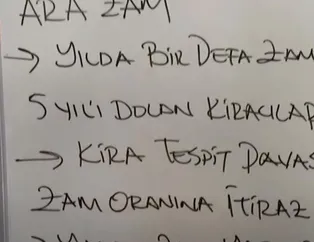 ARA ZAM
→ YILDA BİR DEFA ZAM
5 YILI DOLAN KİRACILAR
→ KİRA TESPİT DAVAS
ZAM ORANINA İTİRAZ